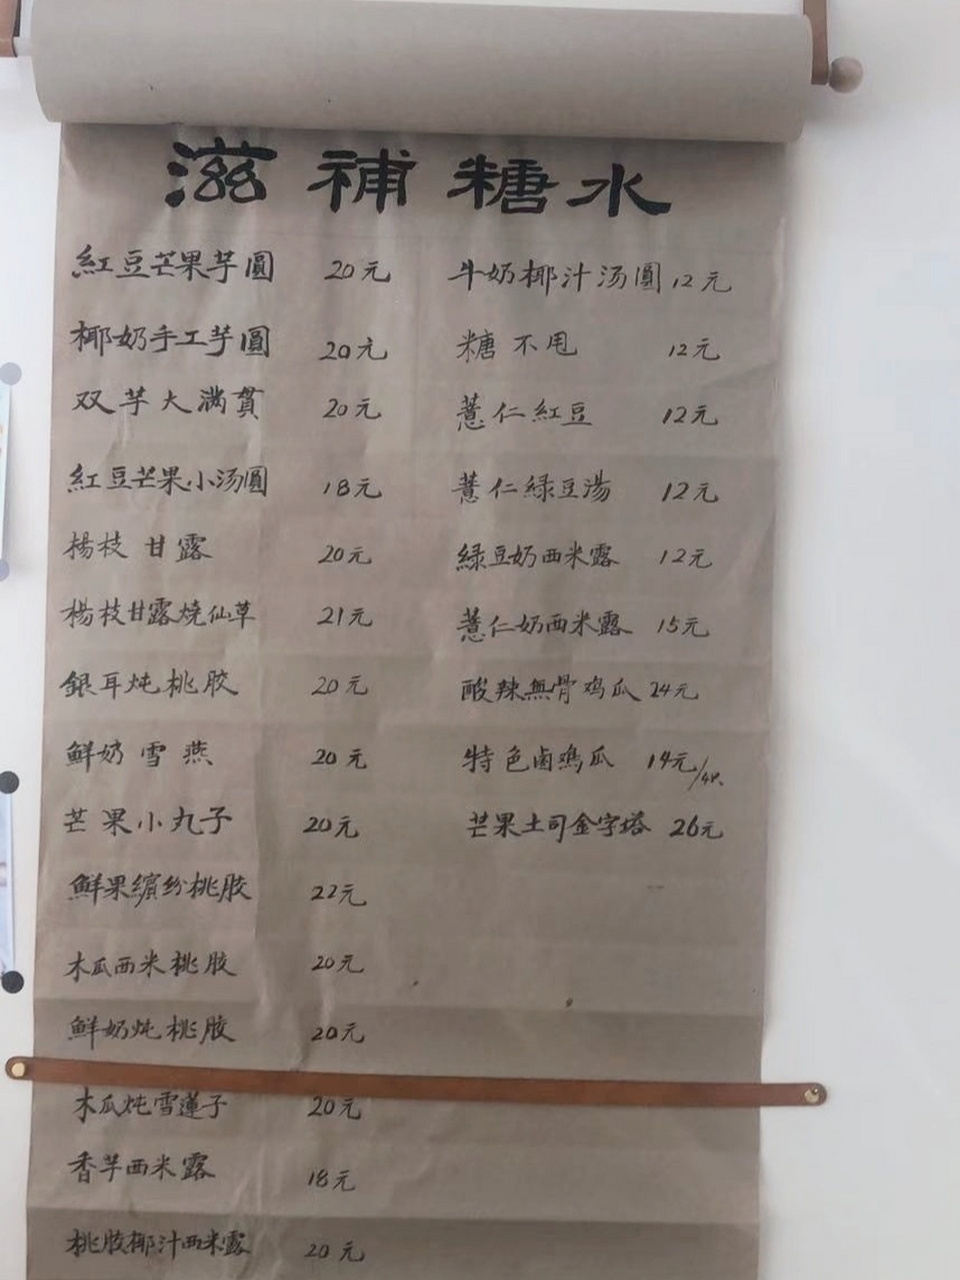 滋補糖水
紅豆芒果芋圓 20元
椰奶手工芋圓 20元
双芋大满貫 20元
紅豆芒果小汤圓 18元
楊枝甘露 20元
楊枝甘露燒仙草 21元
銀耳炖桃胶 20元
鮮奶雪燕 20元
芒果小丸子 20元
鮮果繽纷桃胶 22元
木瓜西米桃胶 20元
鮮奶炖桃胶 20元
木瓜炖雪蓮子 20元
香芋西米露 18元
桃胶椰汁西米露 20元
牛奶椰汁汤圓 12元
糖不甩 12元
薏仁紅豆 12元
薏仁緑豆湯 12元
緑豆奶西米露 12元
薏仁奶西米露 15元
酸辣無骨鸡瓜 24元
特色卤鸡瓜 14元/4只
芒果土司金字塔 26元